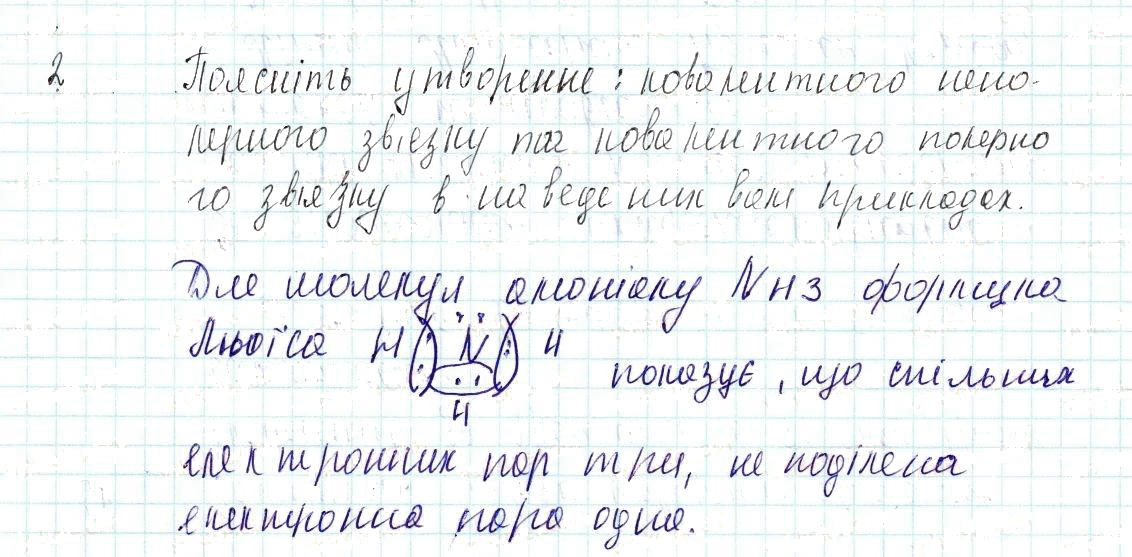 2 Поясніть утворення: ковалентного непо-
лярного зв'язку та ковалентного полярно
го зв'язку в наведених вами прикладах.
Для молекул амоніаку NH3 формула
Льюїса H N H
показує, що спільних
H
електронних пар три, не поділена
електронна пара одна.